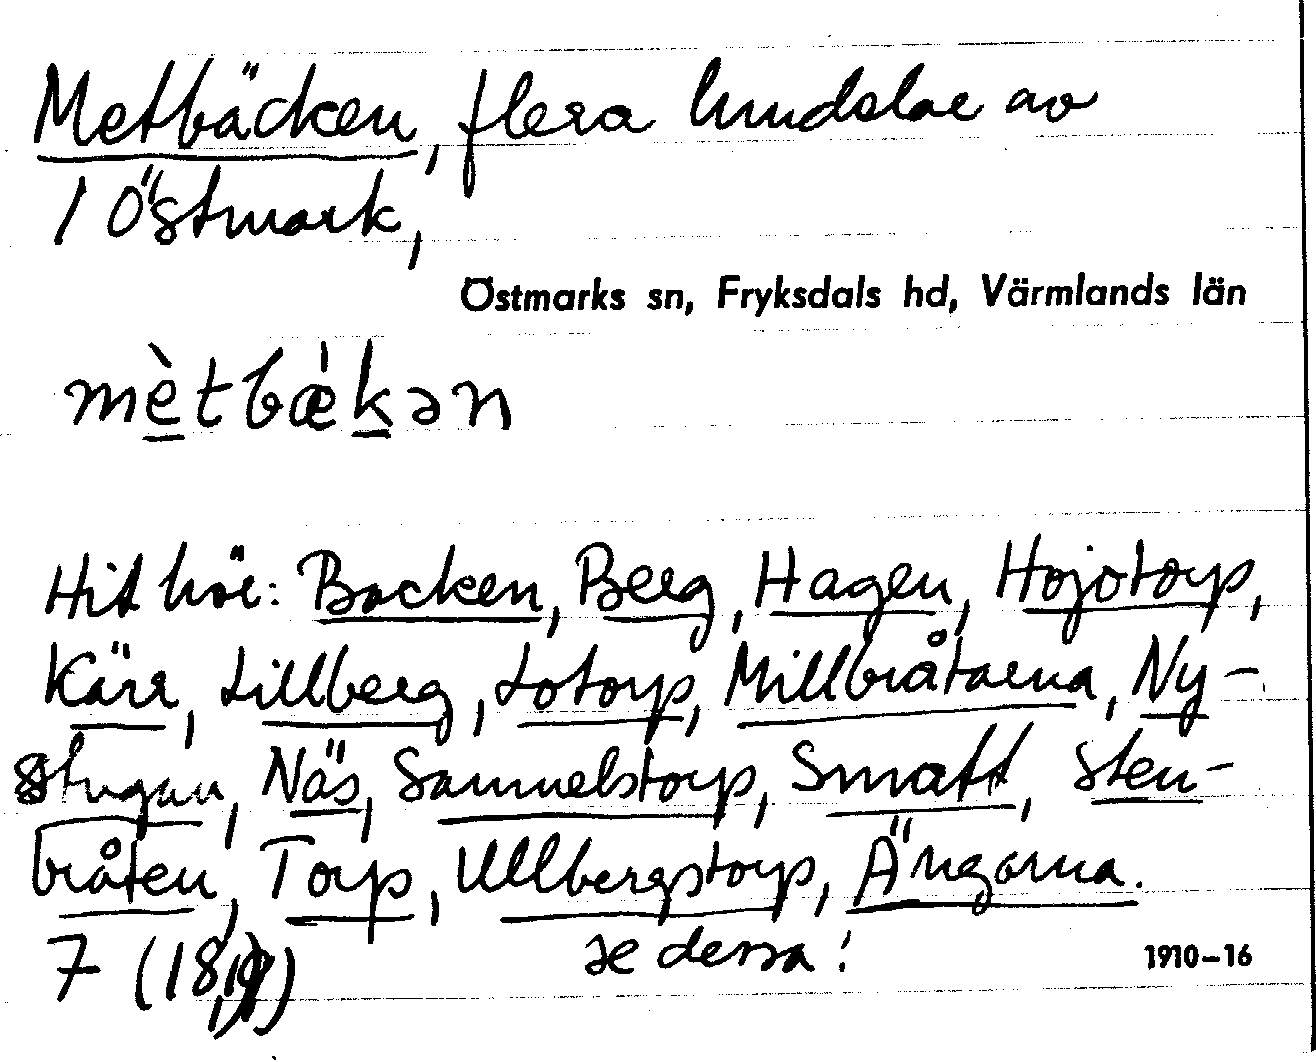 Metbäcken, flera hmdelar av
1 Östmark,
Östmarks sn, Fryksdals hd, Värmlands län
mètbæ̀kən
Hit hör: Backen, Berg, Hagen, Hojotorp,
Kärr, Lillberg, Lotorp, Millbråtarna, Ny-
stugan, Näs, Samuelstorp, Smatt, Sten-
bråten, Torp, Ullbergstorp, Ängarna.
7 (18,19) se dessa! 1910-16